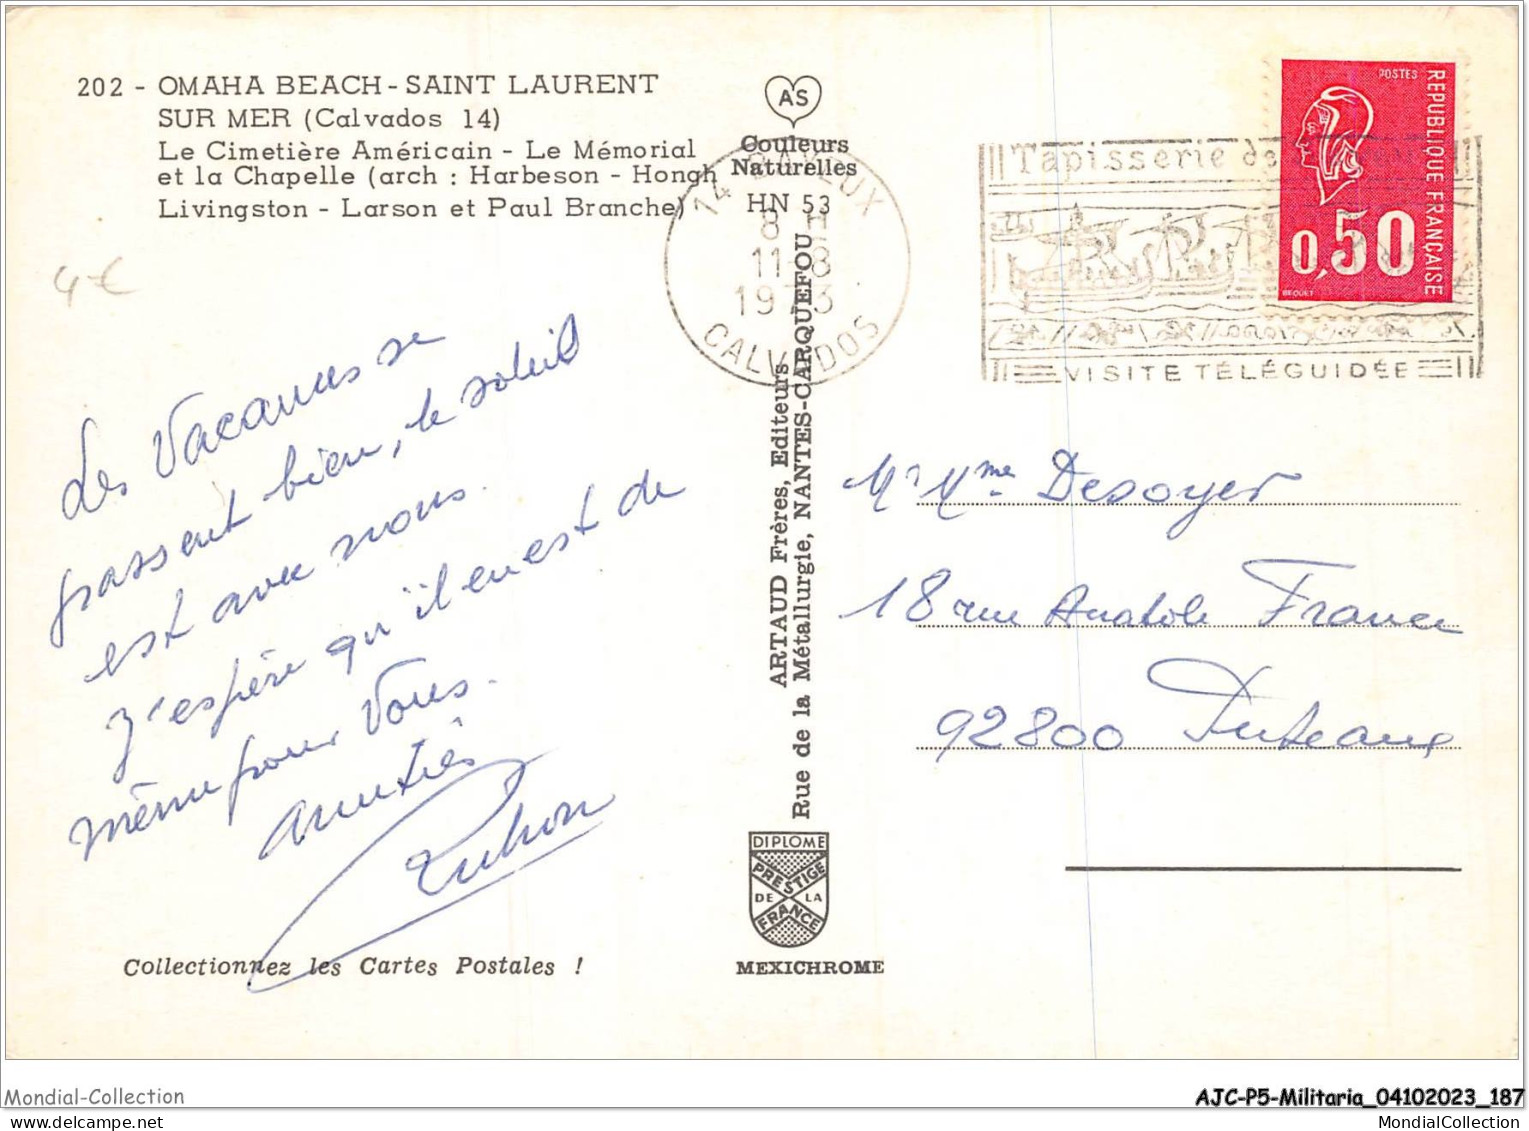 202 - OMAHA BEACH - SAINT LAURENT
SUR MER (Calvados 14)
Le Cimetière Américain - Le Mémorial
et la Chapelle (arch : Harbeson - Hongh
Livingston - Larson et Paul Branche)
AS
Couleurs
Naturelles
HN 53
14 BAYEUX
8 H
11-8
1973
CALVADOS
Tapisserie de
VISITE TÉLÉGUIDÉE
POSTES
REPUBLIQUE FRANÇAISE
0,50
BEQUET
4 €
Les Vacances se
passent bien, le soleil
est avec nous.
J'espère qu'il en est de
même pour Vous.
Amitiés
ARTAUD Frères, Editeurs
Rue de la Métallurgie, NANTES-CARQUEFOU
Mr Mme Desoyer
18 rue Anatole France
92800 Puteaux
DIPLOME
PRESTIGE
DE LA
FRANCE
MEXICHROME
Collectionnez les Cartes Postales !
Mondial-Collection
AJC-P5-Militaria_04102023_187
MondialCollection